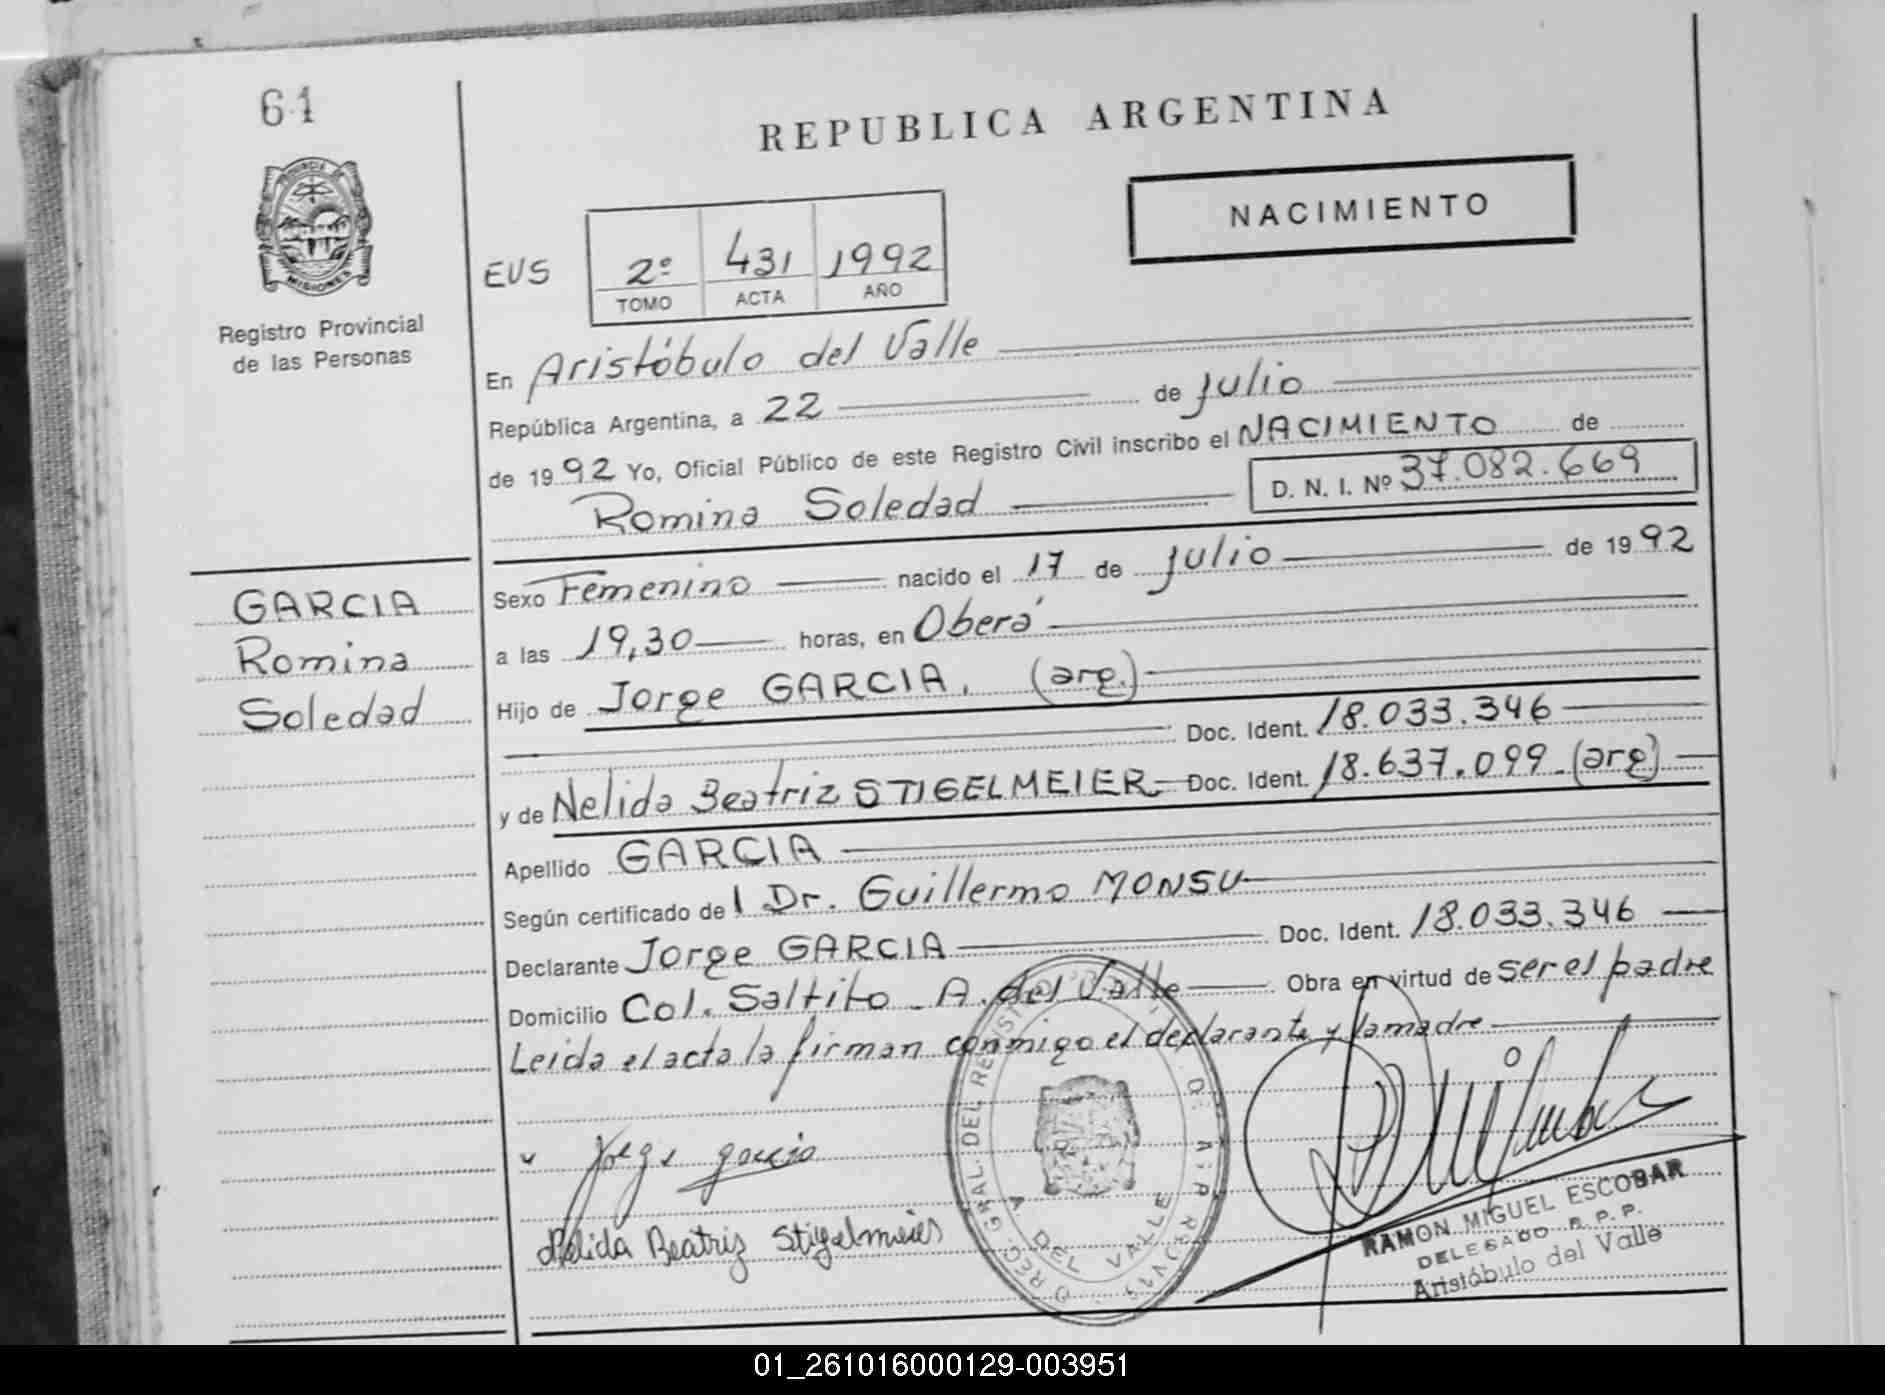 61
REPUBLICA ARGENTINA
PROVINCIA DE
MISIONES
NACIMIENTO
Registro Provincial
de las Personas
EUS 2º 431 1992
TOMO ACTA AÑO
En Aristóbulo del Valle
República Argentina, a 22 de Julio
de 1992 Yo, Oficial Público de este Registro Civil inscribo el NACIMIENTO de
Romina Soledad D. N. I. Nº 37.082.669
GARCIA
Romina
Soledad
Sexo Femenino nacido el 17 de Julio de 1992
a las 19,30 horas, en Oberá
Hijo de Jorge GARCIA. (arg.)
Doc. Ident. 18.033.346
y de Nelida Beatriz STIGELMEIER Doc. Ident. 18.637.099 (arg)
Apellido GARCIA
Según certificado del Dr. Guillermo MONSU
Declarante Jorge GARCIA Doc. Ident. 18.033.346
Domicilio Col. Saltito - A. del Valle Obra en virtud de ser el padre
Leida el acta la firman conmigo el declarante y la madre
Jorge garcia
Nelida Beatriz Stigelmeier
GRAL. DEL
A DEL VALLE
RAMON MIGUEL ESCOBAR
DELEGADO R. P. P.
Aristóbulo del Valle
01_261016000129-003951